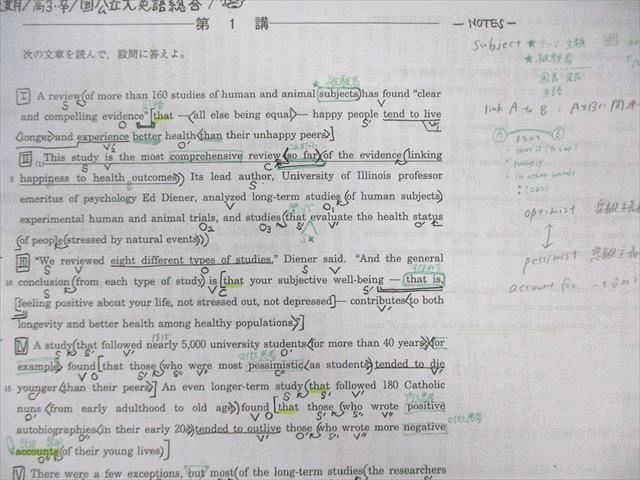 夏期/高3·卒/国公立大英語総合/
第 1 講
— NOTES —
次の文章を読んで、設問に答えよ。
I A review of more than 160 studies of human and animal subjects has found “clear
and compelling evidence” that — all else being equal — happy people tend to live
longer and experience better health than their unhappy peers.
II This study is the most comprehensive review so far of the evidence linking
5 happiness to health outcomes. Its lead author, University of Illinois professor
emeritus of psychology Ed Diener, analyzed long-term studies of human subjects,
experimental human and animal trials, and studies that evaluate the health status
of people stressed by natural events.
III “We reviewed eight different types of studies,” Diener said. “And the general
10 conclusion from each type of study is that your subjective well-being — that is,
feeling positive about your life, not stressed out, not depressed — contributes to both
longevity and better health among healthy populations.”
IV A study that followed nearly 5,000 university students for more than 40 years, for
example, found that those who were most pessimistic as students tended to die
15 younger than their peers. An even longer-term study that followed 180 Catholic
nuns from early adulthood to old age found that those who wrote positive
autobiographies in their early 20s tended to outlive those who wrote more negative
accounts of their young lives.
V There were a few exceptions, but most of the long-term studies the researchers
subject ★テーマ・主題
★被験者
主語
link A to B : AとBに関連
that is (to say)
namely
in other words
optimist
↕
pessimist
account for